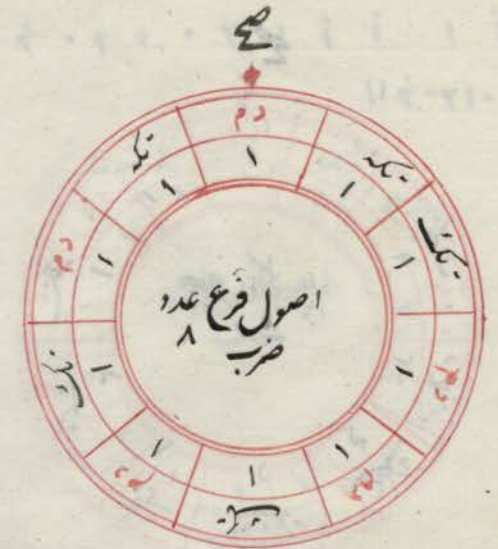 صح
دم
١
تكه
١
تك
١
دم
١
دم
١
١
دم
١
تك
١
دم
١
تكه
١
اصول فرع عدد
ضرب ٨